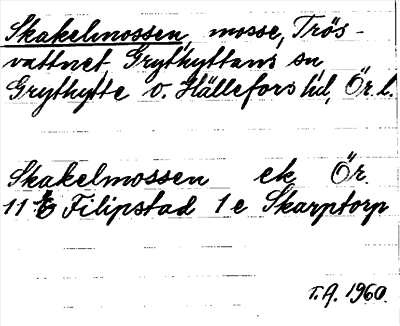 Skakelmossen, mosse, Trös-
vattnet, Grythyttans sn
Grythytte o. Hällefors hd, Ör. l.
Skakelmossen ek Ör.
11 E Filipstad 1e Skarptorp
T.A. 1960.